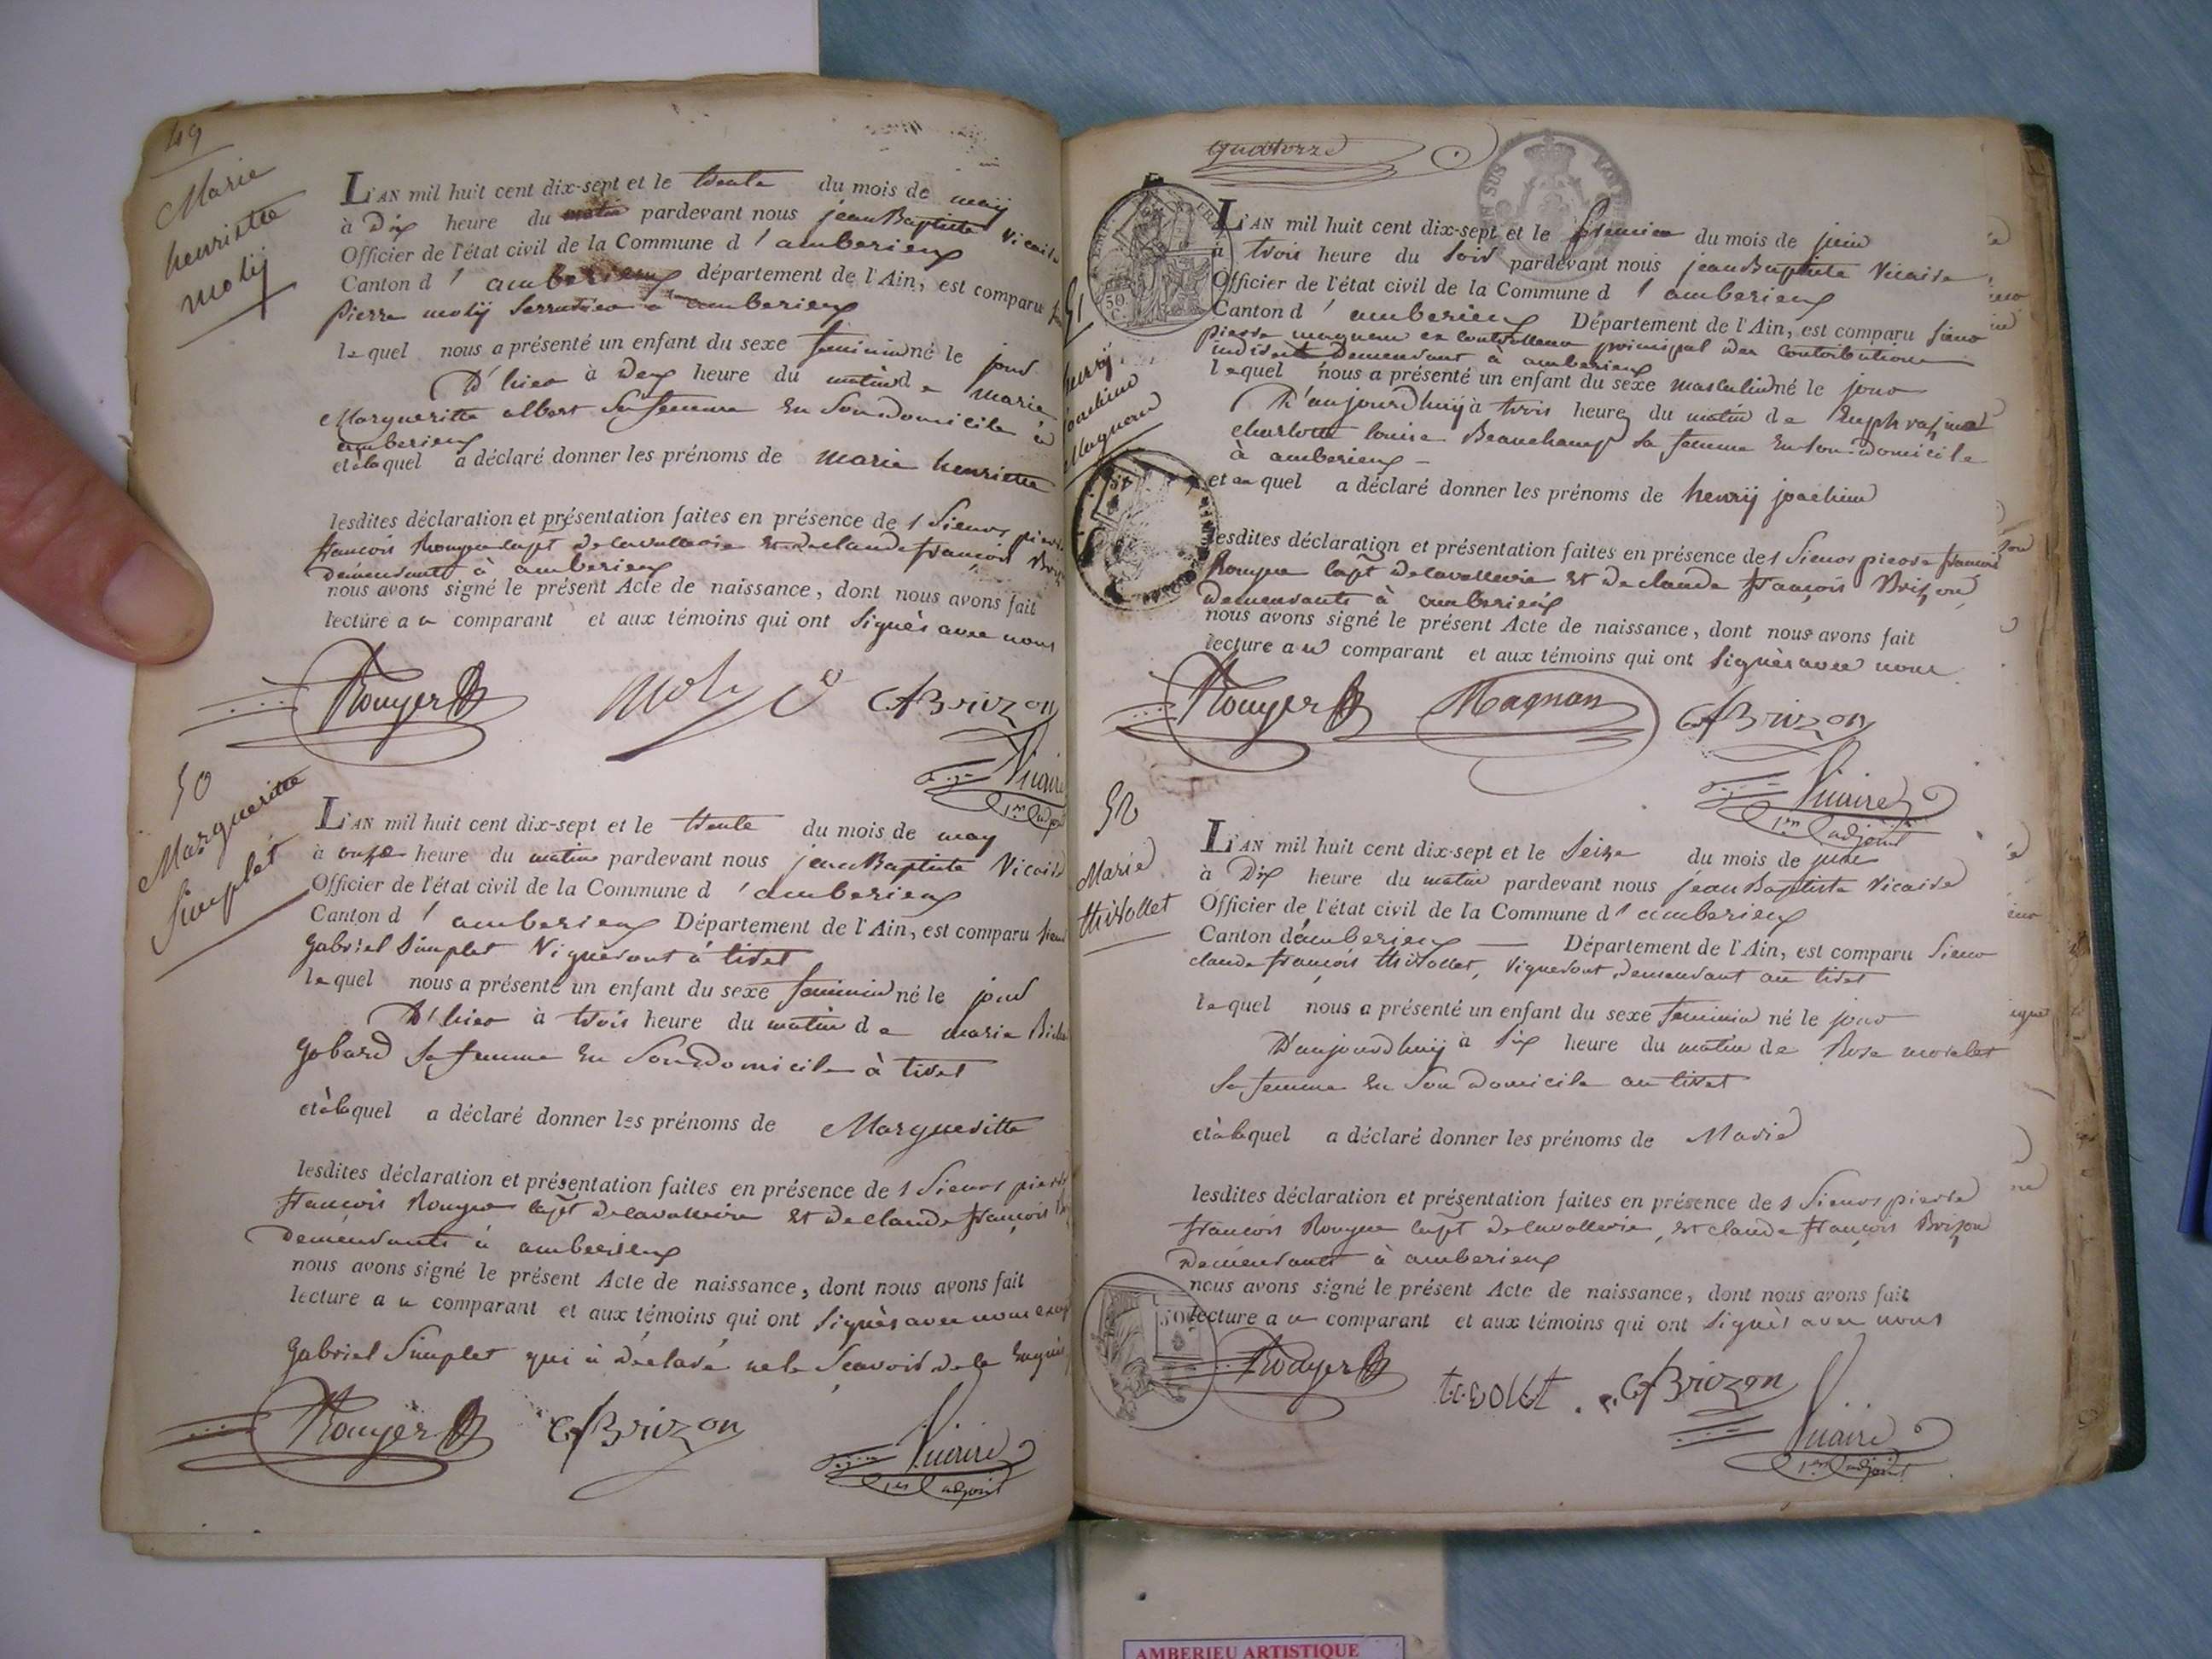 49
Marie
henriette
molij
L'AN mil huit cent dix-sept et le trente du mois de maij
à Dix heure du matin pardevant nous jean Baptiste Vicaire
Officier de l'état civil de la Commune d'amberieux
Canton d'amberieux département de l'Ain, est comparu
pierre molij Serrurier a amberieux
lequel nous a présenté un enfant du sexe feminin né le jour
D'hier à Deux heure du matin de marie
Margueritte albert Sa femme En Son Domicile à
amberieux
et à laquel a déclaré donner les prénoms de marie henriette
lesdites déclaration et présentation faites en présence des Sieurs pierre
francois Rouyer capt De cavallerie Et De claude francois
demeurants à amberieux
nous avons signé le présent Acte de naissance, dont nous avons fait
lecture au comparant et aux témoins qui ont Signés avec nous
Rouyer Moly CfBrizon
Vicaire
1er adjoint
50
Margueritte
Simplet
L'AN mil huit cent dix-sept et le trente du mois de may
à onze heure du matin pardevant nous jean Baptiste Vicaire
Officier de l'état civil de la Commune d'amberieux
Canton d'amberieux Département de l'Ain, est comparu Sieur
Gabriel Simplet Vigneront à tiret
lequel nous a présenté un enfant du sexe feminin né le jour
D'hier à trois heure du matin de marie
Gobard Sa femme En Son Domicile à tiret
et à laquel a déclaré donner les prénoms de Margueritte
lesdites déclaration et présentation faites en présence des Sieurs pierre
francois Rouyer capt De cavallerie Et De claude francois
Demeurants à amberieux
nous avons signé le présent Acte de naissance, dont nous avons fait
lecture au comparant et aux témoins qui ont Signés avec nous
Gabriel Simplet qui à déclaré ne le Scavoir de ce
Rouyer CfBrizon Vicaire
1er adjoint
quatorze
51
henrij
joachim
Magnan
L'AN mil huit cent dix-sept et le premier du mois de juin
à trois heure du Soir pardevant nous jean Baptiste Vicaire
Officier de l'état civil de la Commune d'amberieux
Canton d'amberieux Département de l'Ain, est comparu Sieur
pierre magnan ex controlleur principal des contributions
indirect Demeurant à amberieux
lequel nous a présenté un enfant du sexe masculin né le jour
D'aujourdhuij à trois heures du matin de Euphrasine
charlotte louise Beauchamp Sa femme En Son Domicile
à amberieux
et au quel a déclaré donner les prénoms de henrij joachim
lesdites déclaration et présentation faites en présence des Sieurs pierre francois
Rouyer capt De cavallerie Et De claude francois Brizon
demeurants à amberieux
nous avons signé le présent Acte de naissance, dont nous avons fait
lecture au comparant et aux témoins qui ont Signés avec nous
Rouyer Magnan CfBrizon
Vicaire
1er adjoint
52
Marie
thitollet
L'AN mil huit cent dix-sept et le Seize du mois de juin
à Dix heure du matin pardevant nous jean Baptiste Vicaire
Officier de l'état civil de la Commune d'amberieux
Canton d'amberieux Département de l'Ain, est comparu Sieur
claude francois thitollet, Vigneront demeurant au tiret
lequel nous a présenté un enfant du sexe feminin né le jour
D'aujourdhuij à Six heure du matin de Rose morelet
Sa femme En Son Domicile au tiret
et à laquel a déclaré donner les prénoms de Marie
lesdites déclaration et présentation faites en présence des Sieurs pierre
francois Rouyer capt De cavallerie, Et claude francois Brizon
Demeurants à amberieux
nous avons signé le présent Acte de naissance, dont nous avons fait
lecture au comparant et aux témoins qui ont Signés avec nous
Rouyer CfBrizon
Vicaire
1er adjoint
AMBERIEU ARTISTIQUE